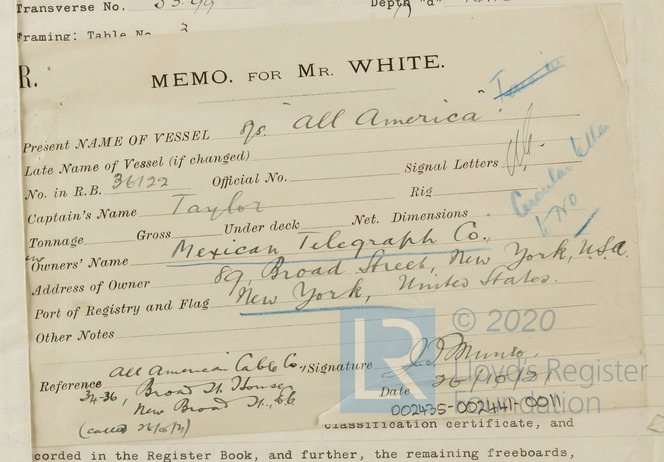 Transverse No. 53.99 Depth "d"
Framing: Table No. 3
R.
MEMO. FOR MR. WHITE.
Present NAME OF VESSEL S/S. "All America"
Late Name of Vessel (if changed)
No. in R.B. 36122 Official No. Signal Letters
Captain's Name Taylor Rig
Tonnage Gross Under deck Net. Dimensions
Circular
Owners' Name Mexican Telegraph Co.,
Address of Owner 89, Broad Street, New York, U.S.A.
Port of Registry and Flag New York, United States.
Other Notes
Reference All American Cable Co., Signature J. Munro
34-36, Broad St. House,
New Broad St., E.C.
Date 26/10/21
(called 26/10/21)
002435-002441-0011
LR
© 2020
Lloyd's Register
Foundation
classification certificate, and
corded in the Register Book, and further, the remaining freeboards,